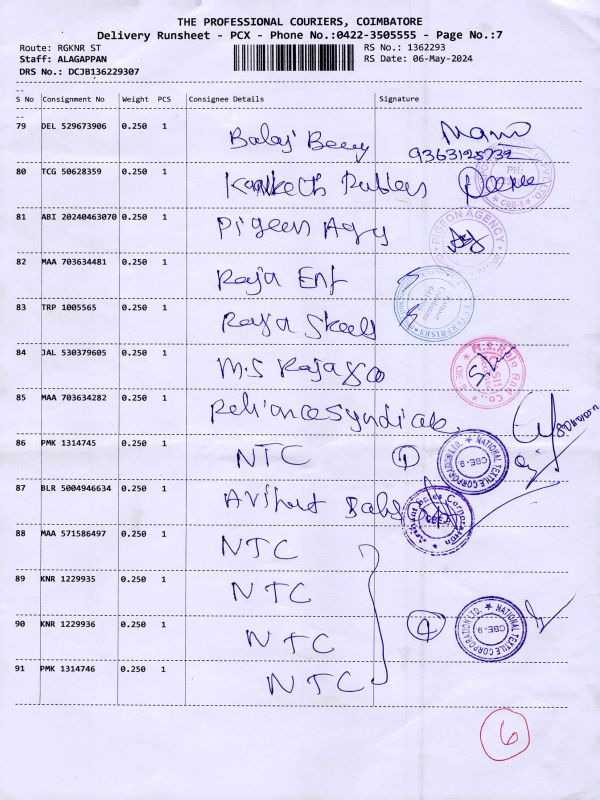 THE PROFESSIONAL COURIERS, COIMBATORE
Delivery Runsheet - PCX - Phone No.:0422-3505555 - Page No.:7
Route: RGKNR ST RS No.: 1362293
Staff: ALAGAPPAN RS Date: 06-May-2024
DRS No.: DCJB136229307
S No Consignment No Weight PCS Consignee Details Signature
79 DEL 529673906 0.250 1 Balaj Mano
9363125732
80 TCG 50628359 0.250 1
81 ABI 20240463070 0.250 1 Pigeon Agy
PIGEON AGENCY
82 MAA 703634481 0.250 1 Raja Ent
83 TRP 1005565 0.250 1 Raja Steels
84 JAL 530379605 0.250 1 M.S Raja & Co
M.S. Raja And Co.
85 MAA 703634282 0.250 1 Reliance Syndicate.
86 PMK 1314745 0.250 1 NTC 1
NATIONAL TEXTILE CORPORATION LTD. CBE-9
87 BLR 5004946634 0.250 1 Arihant Sales
Arihant Sales Corporation CBE
88 MAA 571586497 0.250 1 NTC
89 KNR 1229935 0.250 1 NTC
90 KNR 1229936 0.250 1 NTC 4
NATIONAL TEXTILE CORPORATION LTD. CBE-9
91 PMK 1314746 0.250 1 NTC
6